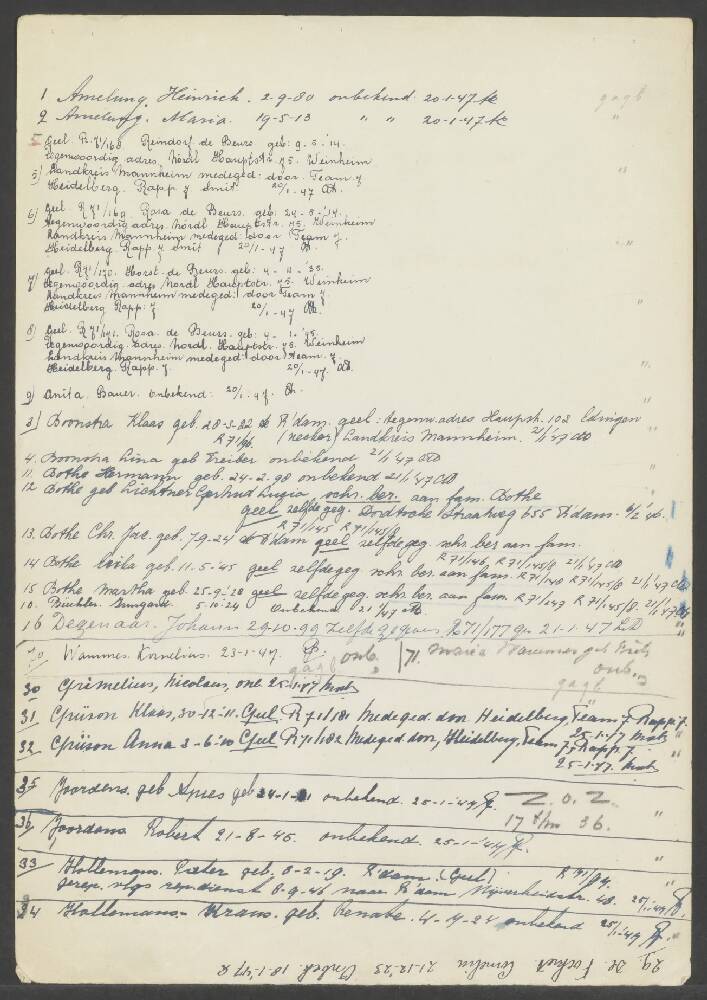 1 Amelung, Heinrich. 2-9-80 onbekend. 20-1-47 gagb
2 Amelung. Maria. 19-5-13 " " 20-1-47 "
Geel. R.71/168 Reindorf de Beurs. geb: 9-5-'14.
tegenwoordig adres Nördl Hauptstr. 75. Weinheim
5) Landkreis Mannheim medeged. door Team 7 "
Heidelberg. Rapp. 7 Smit 20/1-47
6) Geel R 71/169. Rosa de Beurs. geb: 24-8-'14.
tegenwoordig adres, Nördl Hauptstr. 75. Weinheim
Landkreis Mannheim medeged. door Team 7.
Heidelberg Rapp. 7 Smit 20/1-47 "
7) geel. R71/170. Horst de Beurs. geb: 4-11-35.
tegenwoordig adres Nördl Hauptstr. 75. Weinheim
Landkreis Mannheim medeged. door Team 7
Heidelberg Rapp: 7 20/1-47 "
8) Geel. R 71/171. Rosa. de Beurs. geb: 4-1-'45.
tegenwoordig. adres. Nördl. Hauptstr. 75. Weinheim
Landkreis Mannheim medeged. door Team. 7
Heidelberg. Rapp. 7. 20/1-47. "
9) Anita. Bauer. onbekend: 20/1-47. "
3) Boonstra Klaas geb. 28-3-82 R'dam. geel: tegenw. adres Haupstr. 102 Edingen
R 71/96 (neckar) Landkreis Mannheim. 21/1 '47 "
4. Boonstra Lina geb Treiber onbekend 21/1 '47
11. Bothe Hermann geb. 24-2-98 onbekend 21/1 '47
12 Bothe geb Lichtner Gertrud Luzia, schr. ber. aan fam. Bothe
geel zelfde geg. Dordtsche Straatweg 655 R'dam.
13. Bothe Chr. Jac. geb. 7-9-24 R'dam geel zelfde geg. schr. ber aan fam.
R 71/145 R 71/145/8
14 Bothe geb. 11-5-'45 geel zelfde geg schr. ber. aan fam. R 71/146, R 71/145/8 21/1 '47
15 Bothe Martha geb. 25-9-'28 geel zelfde geg. schr. ber. aan fam. R 71/147 R 71/145/8. 21/1 '47
10. Büchler Irmgard. 5-10-24 Onbekend 21/1 '47 "
16 Degenaar. Johann 29-10-99 Zelfde gegevens R 71/177 21-1-47 "
70 Wammes. Kornelius. 23-1-47. onb. 71. Maria Wammes geb
gagb onb. "
30 Grimelius, Nicolaas, onb. 25-1-47 gagb
31 Grüson Klaas, 30-12-11. Geel. R 71/181 Medeged. door Heidelberg, Team 7 Rapp 7.
25-1-47 "
32. Grüson Anna 3-6-10 Geel R 71/182 Medeged. door, Heidelberg, Team 7, Rapp. 7. "
25-1-47.
35 Joordens. geb geb 24-1- onbekend. 25-1-'47 Z.O.Z.
17 t/m 36. "
36/ Joordens Robert 21-8-45. onbekend. 25-1-'47
33/ Hollemans. Pieter geb. 8-2-19. R'dam. (Geel) R 71/94. "
gerep. vlgs rep.dienst 8-9-46 naar R'dam 48. 25/1-'47
34 Hollemans-Kraus. geb. Renate. onbekend 25/1-'47 "
29. de Cornelia 21-12-'23 Onbek. 18-1-'47